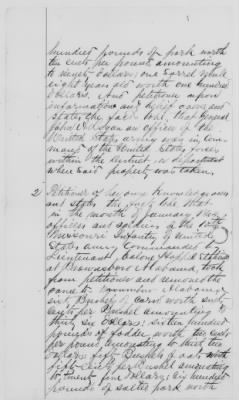 hundred pounds of pork worth
ten cents per pound amounting
to ninety dollars; one sorrel mule
eight years old worth one hundred
dollars. And petitioner upon
information and belief avers and
states the fact to be, that General
John A Logan an officer of the
United States army was in com-
mand of the United States forces
within the district or department
where said property was taken.
2 Petitioner of her own knowledge avers
and states the fact to be that
in the month of January 1864
officers and soldiers of the 10th
Missouri Infantry of United
States army Commanded by
Lieutenant Colony
at Alabama, took
from petitioner and removed the
same to Alabama
six Bushels of corn worth
cents per Bushel amounting to
thirty six dollars; sixteen hundred
pounds of fodder worth two cents
per pound, amounting to thirty two
dollars; fifty Bushels of oats worth
fifty cents per Bushel amounting
to twenty five dollars; six hundred
pounds of salted pork worth